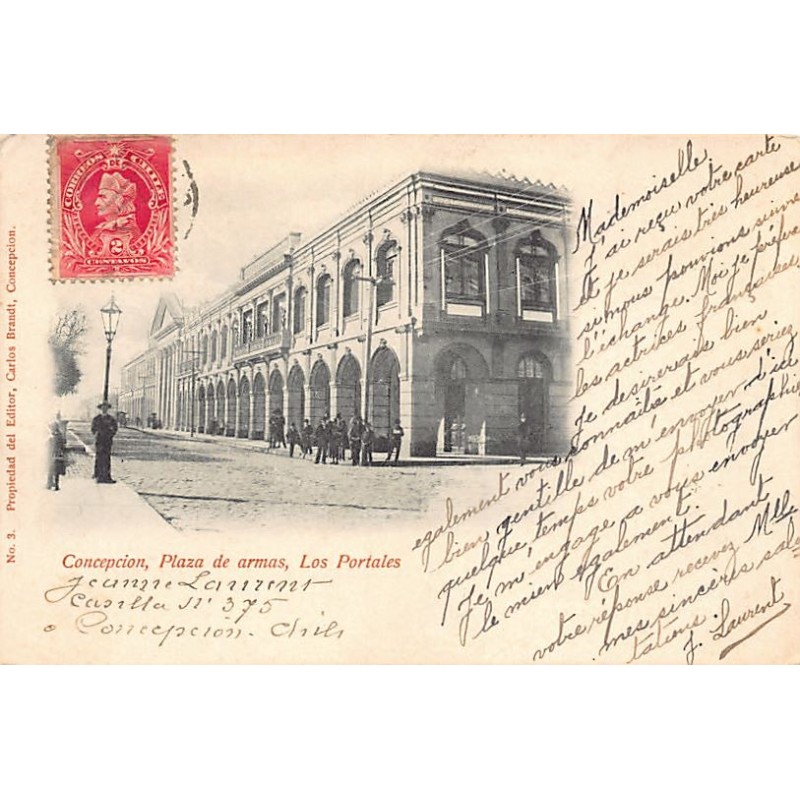 CORREOS DE CHILE
2
CENTAVOS
No. 3. Propiedad del Editor, Carlos Brandt, Concepcion.
Concepcion, Plaza de armas, Los Portales
Jeanne Laurent
Casilla No 375
Concepción. Chili
Mademoiselle.
J'ai reçu votre carte
et je serais très heureuse
si nous pouvions suivre
l'échange. Moi je préfère
les actrices françaises
Je desirerais bien
également vous connaitre et vous seriez
bien gentille de m'envoyer d'ici
quelque temps votre photographie
Je m'engage a vous envoyer
le mien également.
En attendant
votre réponse recevez Mlle
mes sincères salu
tations.
J. Laurent